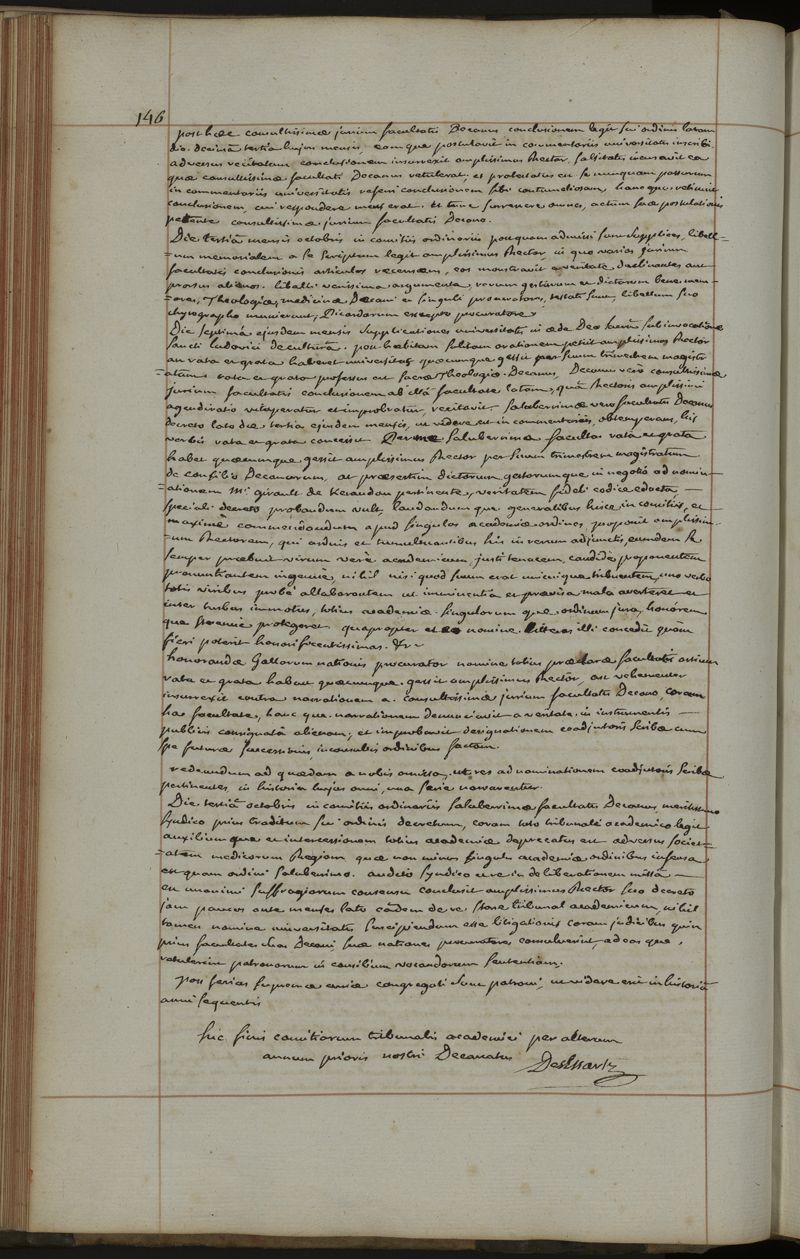 146
post haec consultissimae jurium facultatis Decanus conclusionem legit sui ordinis latam
die decima tertia hujus mensis, eamque postulavit in commentariis universitatis inscribi.
adversus veritatem conclusionem insurrexit amplissimus Rector. falsitatis incusavit ea
quae consultissimae facultatis Decanus retulerat; et protestatus est se nunquam passurum
in commentariis universitatis referri conclusionem sibi contumeliosam hancque retinuit
conclusionem, cui respondere mens erat. et tunc surrexere omnes, actum suae postulationis
petente consultissimae jurium facultatis Decano.
Die tertia mensis octobris in comitiis ordinariis postquam admissi sunt supplices, libell-
=um memorialem a se scriptum legit amplissimus Rector in quo varios jurium
facultatis conclusionis articulos recensens, eos monstravit a veritate declinantes aut
prorsus alienos. libelli verissima argumenta, rerum gestarum et dictorum bene mem-
=ores, Theologiae, medicinae Decani et singuli procuratores, testati sunt, libellum suo
chyrographo munierunt, Picardorum excepto procuratore.
Die septima ejusdem mensis supplicationes universitatis in aede Deo sacra sub invocatione
sancti ludovici de cultura. post habitam solitam orationem petiit amplissimus Rector
an rata et grata haberet universitas quaecumque gessit per suum trimestrem magistr-
=atum. rata et grata professus est sacrae Theologiae Decanus, Decanus vero consultissimae
jurium facultatis conclusionem ab illa facultate latam, qua Rectoris amplissimi
agendi ratio vituperatur et improbatur, recitavit. saluberrimae vero facultatis Decanus
decreto lato die tertia ejusdem mensis, ut videre est in commentariis, obtemperans, his
verbis rata et grata concessit saluberrima facultas rata et grata
habet quaecumque gessit amplissimus Rector per suum trimestrem magistratum
de consilio Decanorum, ac praesertim dictorum gestorumque in negotio ad nomin-
=ationem M. girault de Keraudou pertinente, veritatem fideli codice eductam,
speciali decreto probandum vult, laudandum que generalibus hisce in comitiis, et
maxime commendandum apud singulos academiae ordines, proponit amplissim-
=um Rectorem, qui arduis et tumultuantibus his in rerum adjunctis, eumdem se
semper praebuit virum vere academicum, justi tenacem, candide proponentem
pronuntiantem ingenue, nihil nisi quod suum erat unicuique tribuentem, uno verbo
totis viribus probe allaborantem ut imminentia et praevisa mala averteret et
inter turbas immotus, totius academiae singulorum que ordinum jura, honorem
que strenue protegeret. quapropter et eo nomine litteras illi concedit quam
fieri poterit honorificentissimas. &c
honorandae Gallorum nationis procurator nomine totius praeclarae facultatis artium
rata et grata habuit quaecumque gessit amplissimus Rector, ast vehementer
insurrexit contra narrationem a consultissimae jurium facultatis Decano, coram
hac facultate, hanc que narrationem denunciavit a veritate in instrumentis
publicis consignata alienam, et improbavit designationem coadjutoris scribae cum
spe futurae successionis, inconsultis ordinibus factam.
redeundum ad quaedam a nobis omissa, ut res ad nominationem coadjutoris scribae
pertinentes, in historia hujus anni, una serie narrarentur.
Die tertia octobris in comitiis ordinariis saluberrimae facultatis Decanus meritissimo
syndico prius traditum sui ordinis decretum, coram toto tribunali academico legit
auxiliumque et intercessionem totius academiae deprecatus est adversus societ-
=atem medicorum Regiam quae non minus singulis academiae ordinibus infensa
est quam ordini saluberrimo. audito syndico et re in deliberationem missa
ex unanimi suffragiorum consensu conclusit amplissimus Rector suo decreto
jam paucos ante menses lato eadem de re stare tribunal academicum, nihil
tamen nomine universitatis suscipiendum esse litigationis coram judicibus quin
prius facultates suas Decani suas nationes procuratores consuluerint, ad eos que
retulerint patronorum in consilium vocandorum sententiam.
post ferias supremae curiae congregati sunt patroni, ut videre erit in historia
anni sequentis
hic finis comitiorum tribunalis academici per alterum
annum prioris nostri Decanatus
DesEssartz